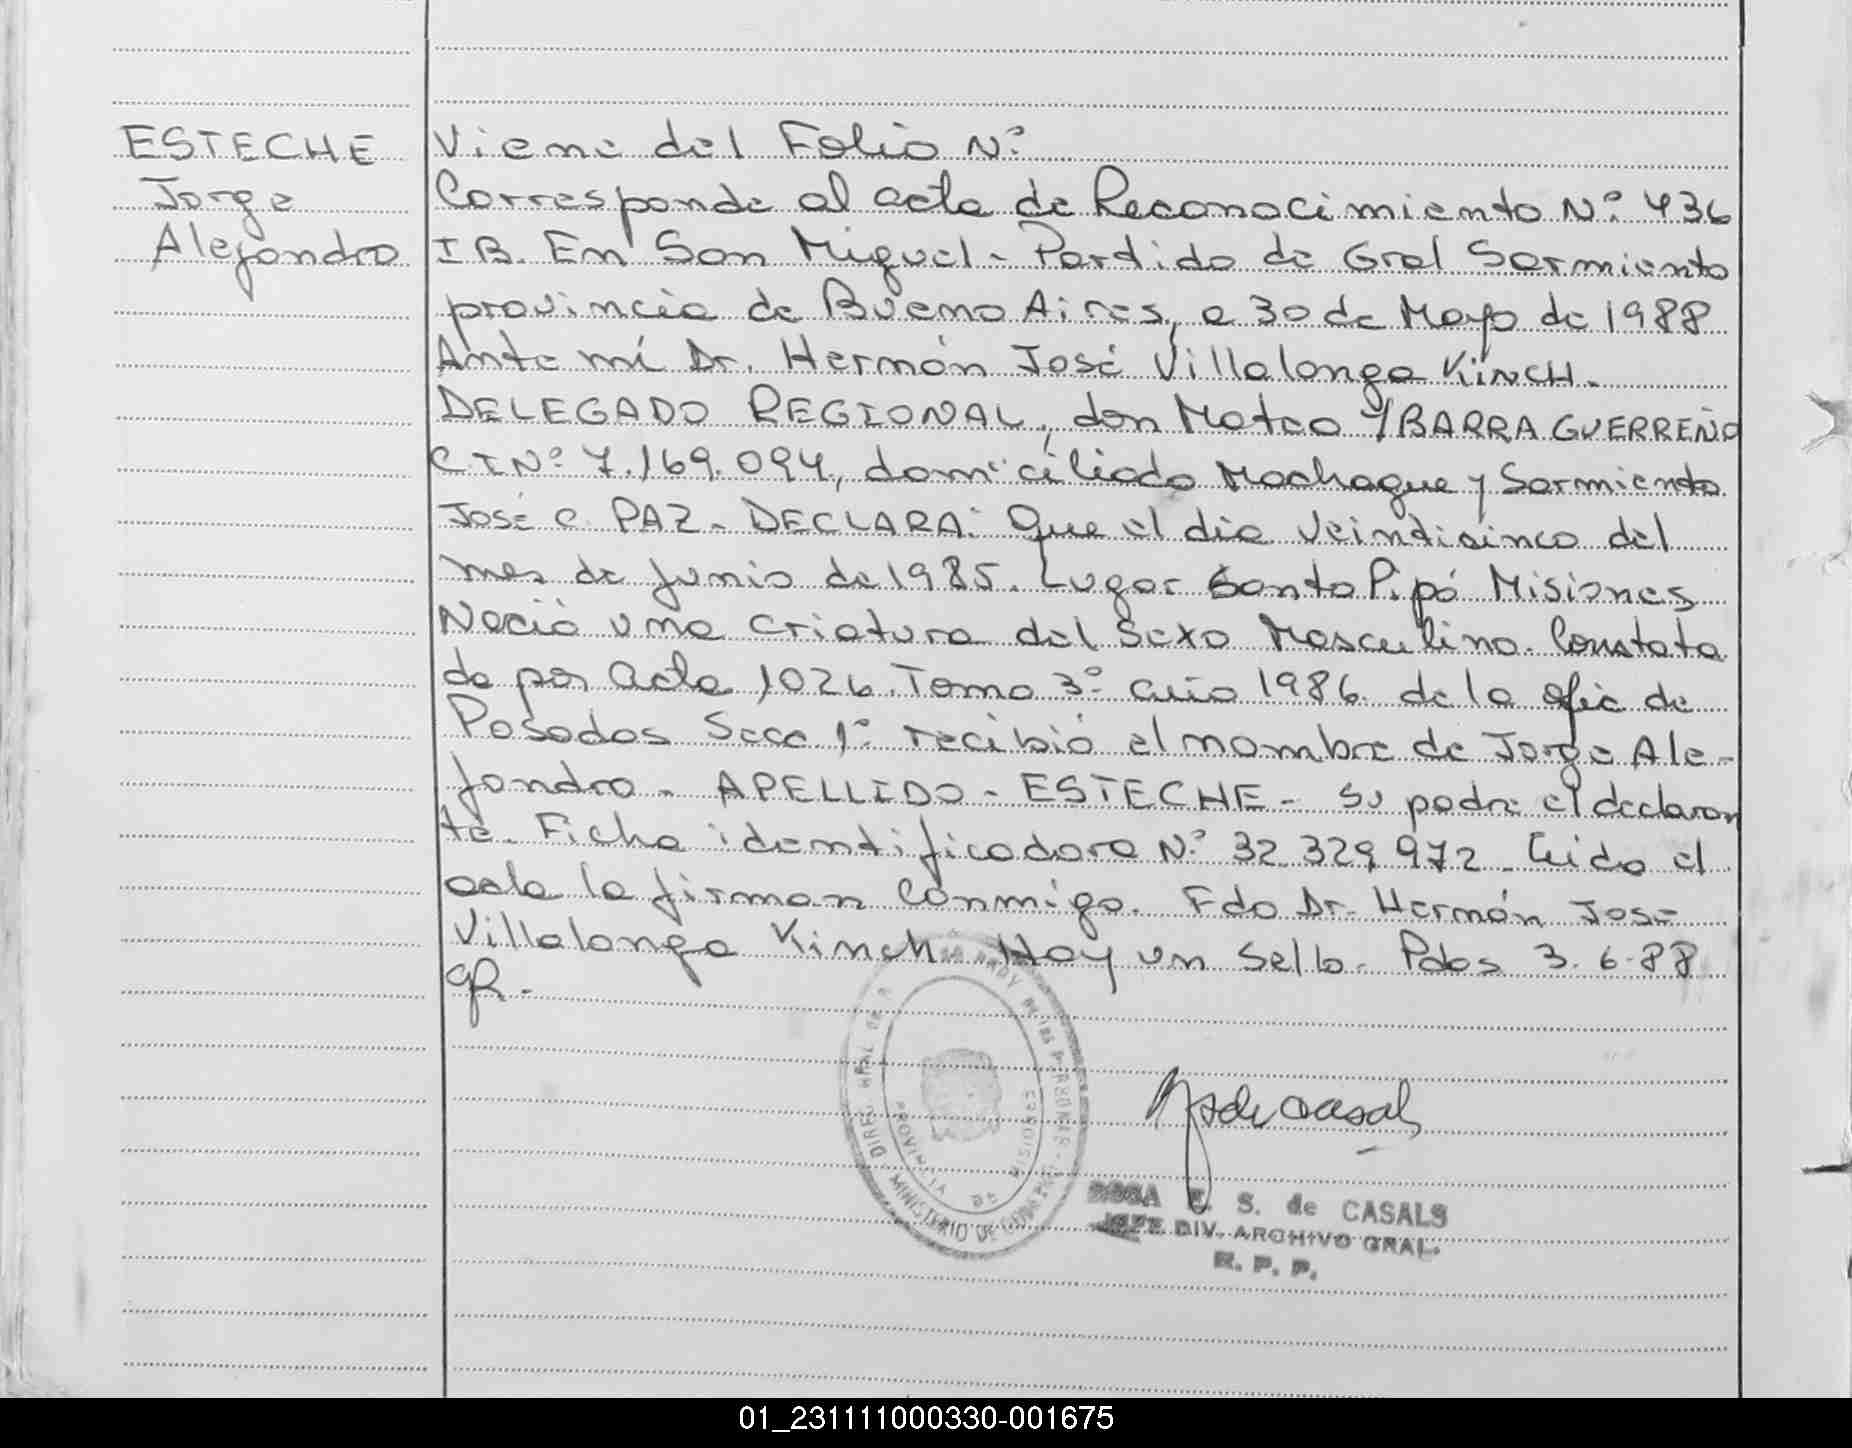 ESTECHE
Jorge
Alejandro
Viene del Folio Nº
Corresponde al acta de Reconocimiento Nº 436
I B. En San Miguel - Partido de Gral Sarmiento
provincia de Bueno Aires, a 30 de Mayo de 1988
Ante mí Dr. Hernón José Villalonga Kinch.
DELEGADO REGIONAL, don Mateo YBARRA GUERREÑO
C I Nº 7.169.094, domiciliado Machague y Sarmiento
José C. PAZ - DECLARA: Que el día Veindicinco del
mes de Junio de 1985. Lugar Santo Pipó Misiones
Nació una criatura del Sexo Masculino. Constata
da por acta 1026. Tomo 3º año 1986. de la ofic de
Posadas Secc 1º recibió el nombre de Jorge Ale-
jandro - APELLIDO - ESTECHE - su padre el declaran
te. Ficha identificadora Nº 32.329.972 - Leida el
acta la firman conmigo. Fdo Dr. Hernón José
Villalonga Kinch. Hay un Sello - Pdas 3.6.88
gR.
PROVINCIA DE MISIONES
MINISTERIO DE GOBIERNO
ROSA E. S. de CASALS
JEFE DIV. ARCHIVO GRAL.
R. P. P.
01_231111000330-001675